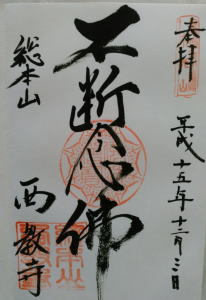 奉拝
平成十五年十二月三日
不断念佛
総本山
西教寺